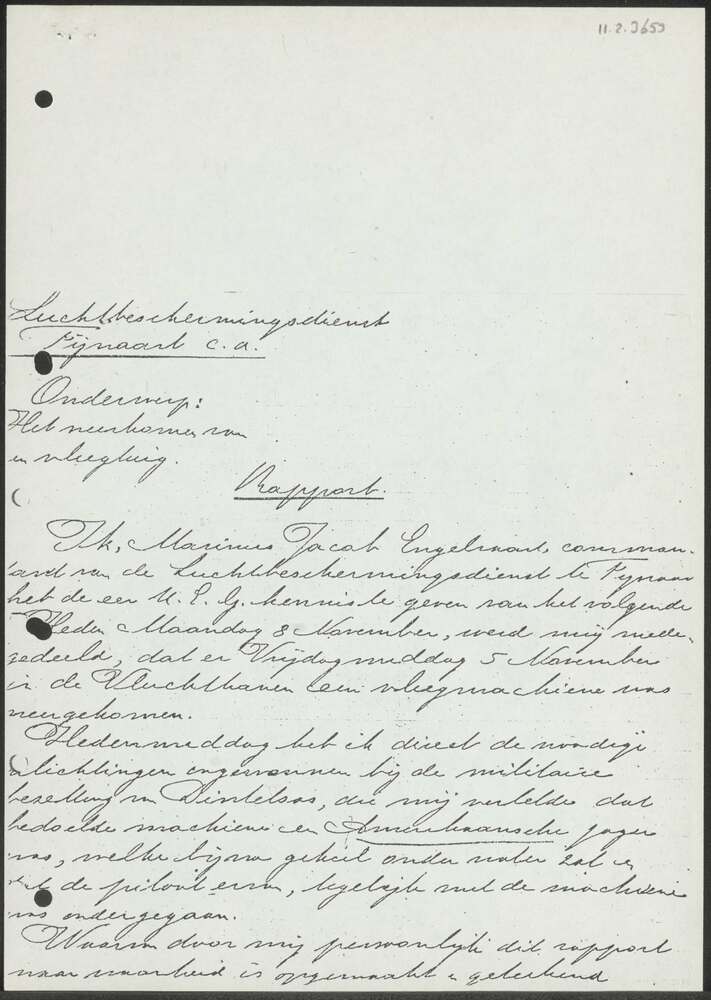 11.2.3659
Luchtbeschermingsdienst
Fijnaart c.a.
Onderwerp:
Het neerkomen van
en vliegtuig.
Rapport.
Ik, Marinus Jacob Engelvaart, comman-
ant van de Luchtbeschermingsdienst te Fijnaar
heb de eer U.E.G. kennis te geven van het volgende
Heden Maandag 8 November, werd mij mede-
gedeeld, dat er Vrijdagmiddag 5 November
in de Vluchthaven een vliegmachiene was
neergekomen.
Hedenmiddag heb ik direct de noodige
nlichtingen ingewonnen bij de militaire
bezetting in Dintelsas, die mij vertelde dat
bedoelde machiene een Amerikaansche jager
was, welke bijna geheel onder water zat en
de piloot ervan, tegelijk met de machiene
was ondergegaan.
Waarvan door mij persoonlijk dit rapport
naar waarheid is opgemaakt en geteekend